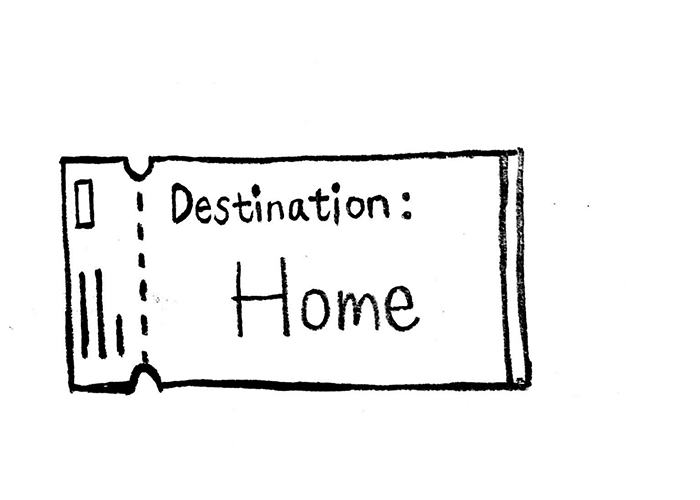 Destination:
Home